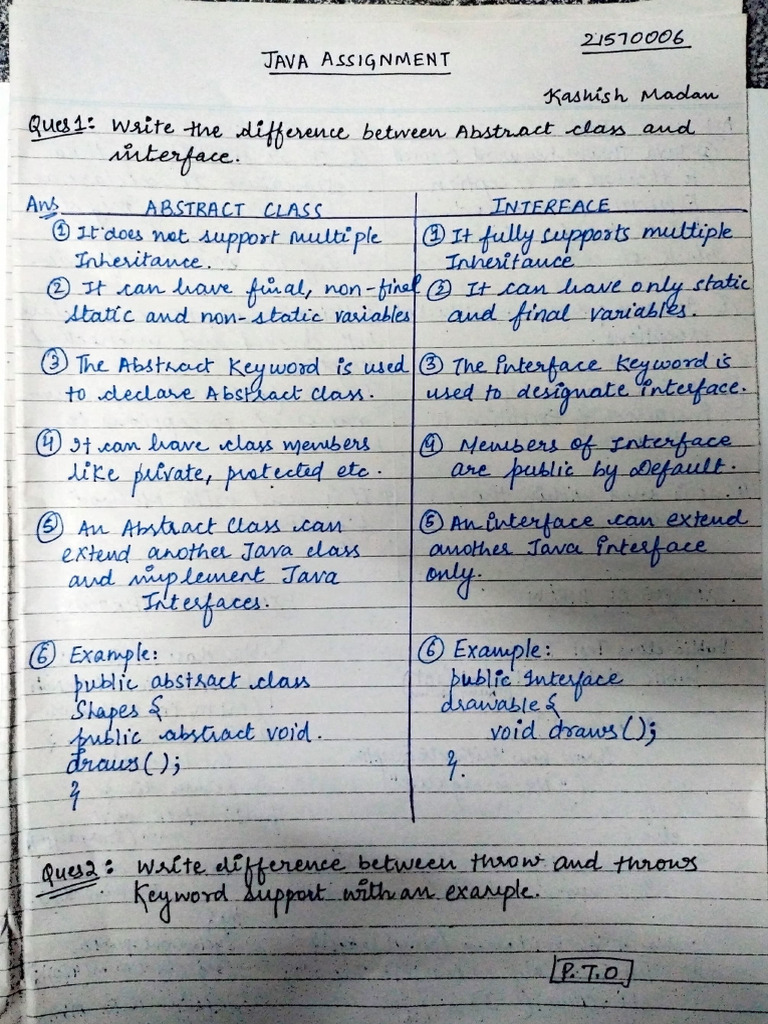 21570006
JAVA ASSIGNMENT
Kashish Madan
Ques1: Write the difference between Abstract class and
interface.
Ans
ABSTRACT CLASS
① It does not support multiple
Inheritance.
② It can have final, non-final
static and non-static variables
③ The Abstract Keyword is used
to declare Abstract Class.
④ It can have class members
like private, protected etc.
⑤ An Abstract Class can
extend another Java class
and implement Java
Interfaces.
⑥ Example:
public abstract class
Shapes {
public abstract void.
draws();
}
INTERFACE
① It fully supports multiple
Inheritance
② It can have only static
and final variables.
③ The interface Keyword is
used to designate interface.
④ Members of Interface
are public by Default.
⑤ An interface can extend
another Java interface
only.
⑥ Example:
public Interface
drawable {
void draws();
}.
Ques2: Write difference between throw and throws
Keyword support with an example.
P.T.O